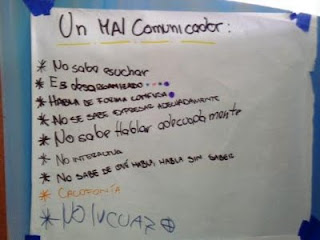 Un MAl Comunicador:
* No sabe escuchar
* Es desorganizado
* HABLA DE FORMA CONFUSA
* NO SE SABE EXPRESAR ADECUADAMENTE
* No sabe Hablar adecuada mente
* NO INTERACTUA
* NO SABE DE QUÉ HABLA, HABLA SIN SABER
* CACOFONÍA
*